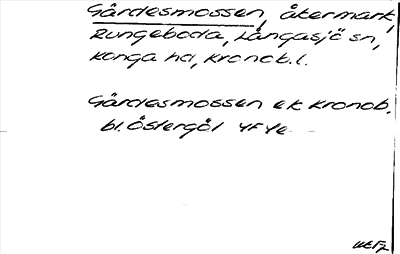 Gårdesmossen, åkermark,
Rungeboda, Långasjö sn,
Konga hd, Kronob. l.
Gårdesmossen ek Kronob.
bl. Östergöl 4F4e